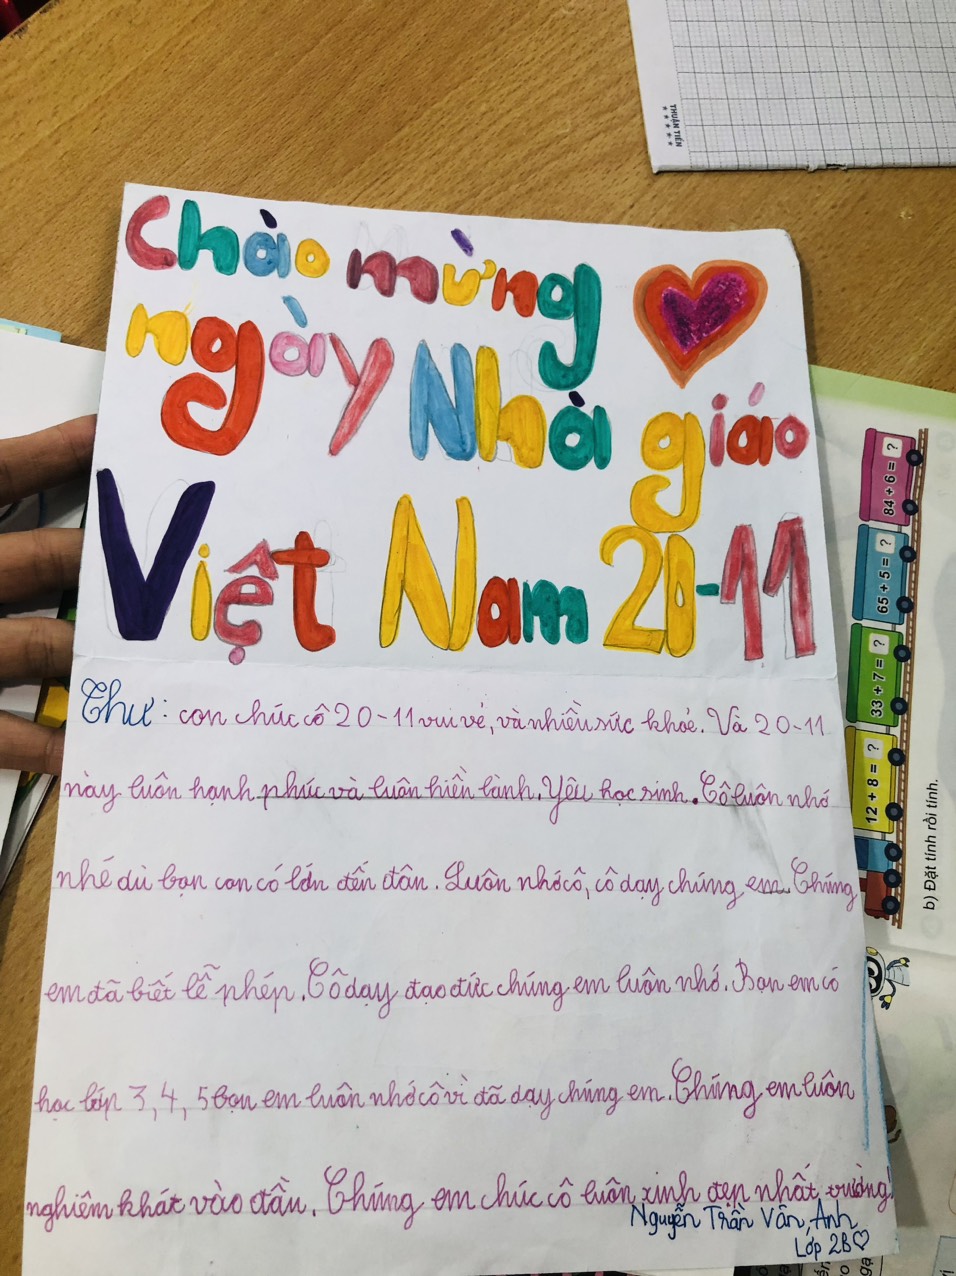 THUẬN TIẾN
Chào mừng
ngày Nhà giáo
Việt Nam 20-11
Thư: con chúc cô 20-11 vui vẻ, và nhiều sức khỏe. Và 20-11
này luôn hạnh phúc và luôn hiền lành. Yêu học sinh. Cô luôn nhớ
nhé dù bạn con có lớn đến đân. Luôn nhớ cô, cô dạy chúng em. Chúng
em đã biết lễ phép. Cô dạy đạo đức chúng em luôn nhớ. Bạn em có
học lớp 3, 4, 5 bạn em luôn nhớ cô vì đã dạy chúng em. Chúng em luôn
nghiêm khát vào đần. Chúng em chúc cô luôn xinh đẹp nhất trường!
Nguyễn Trần Vân Anh
Lớp 2B♡
84 + 6 = ?
65 + 5 = ?
33 + 7 = ?
12 + 8 = ?
b) Đặt tính rồi tính.